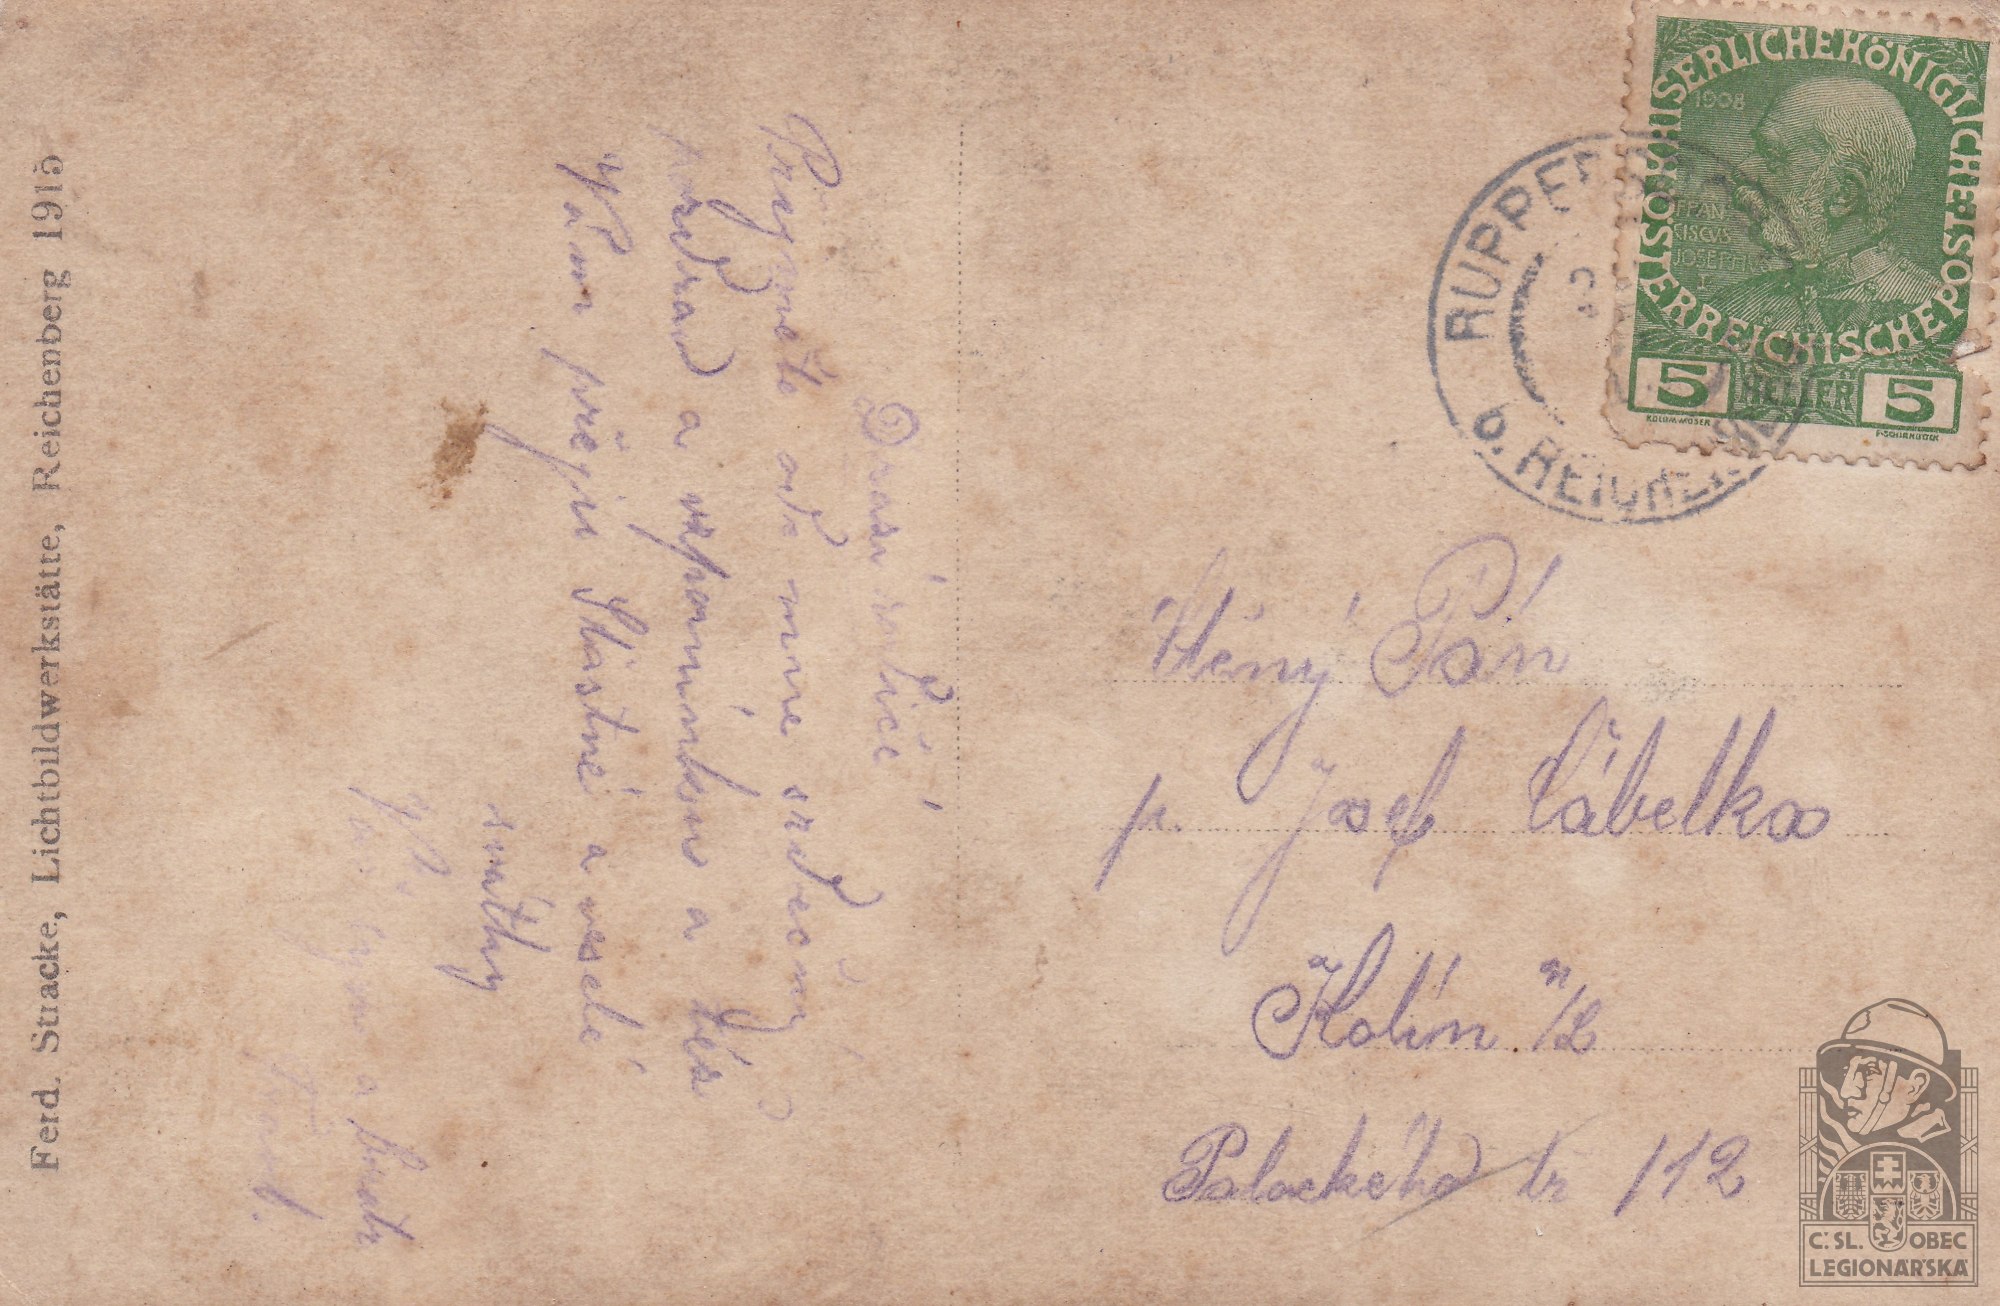 Ferd. Stracke, Lichtbildwerkstätte, Reichenberg 1915
Drazí rodiče
Přijměte ode mne srdečný
pozdrav a vzpomínku a též
Vám přeji šťastné a veselé
svátky
Váš syn a bratr
KAISERLICHE KÖNIGLICHE ÖSTERREICHISCHE POST
1908
FRAN
CISCVS
JOSEPH
I
5 HELLER 5
KOLOM.MOSER F.SCHIRNBÖCK
RUPPERSD
b. REICHEN
Ctěný Pán
p. Josef Cábelka
Kolín n/L
Palackého tř 112
Č.SL. OBEC
LEGIONÁŘSKÁ